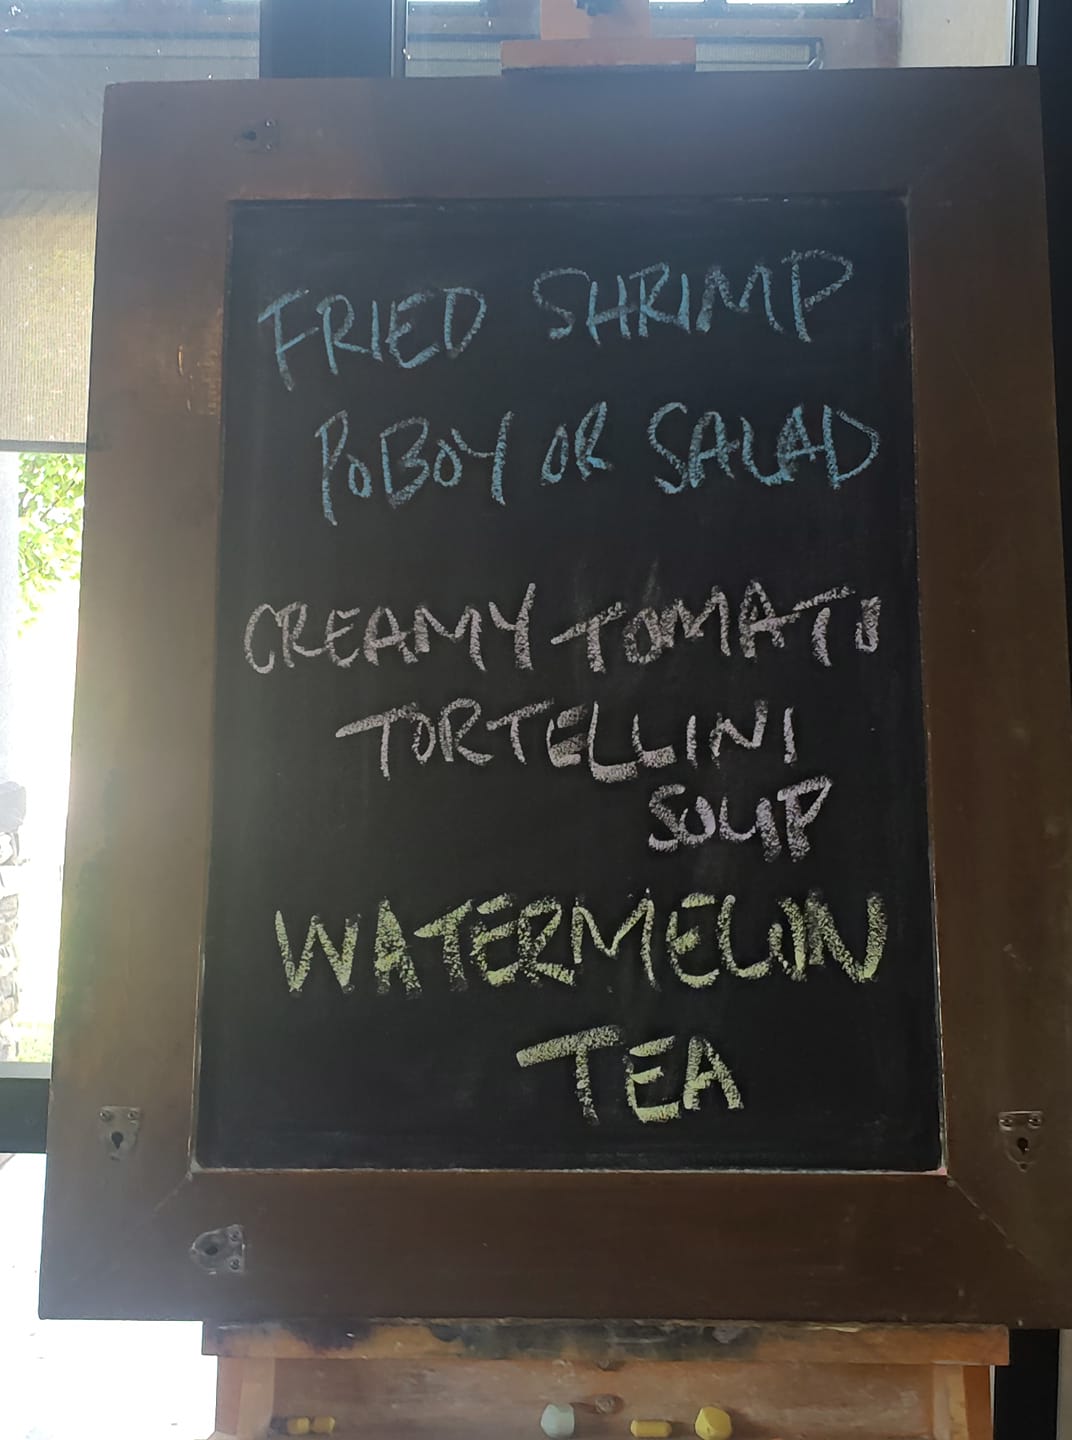 FRIED SHRIMP
POBOY OR SALAD
CREAMY TOMATO
TORTELLINI
SOUP
WATERMELON
TEA